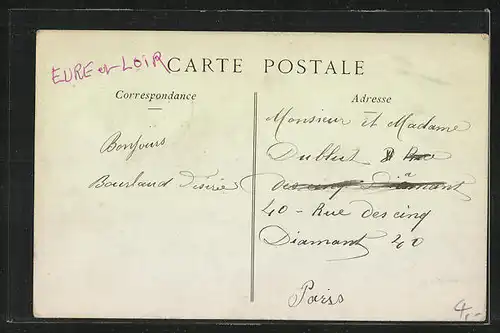 EURE et LOIR
CARTE POSTALE
Correspondance
Adresse
Bonjours
Bourland Désirée
Monsieur et Madame
Dublut 8 Rue
des cinq Diamant
à
40 - Rue des cinq
Diamant 40
Paris
4,-